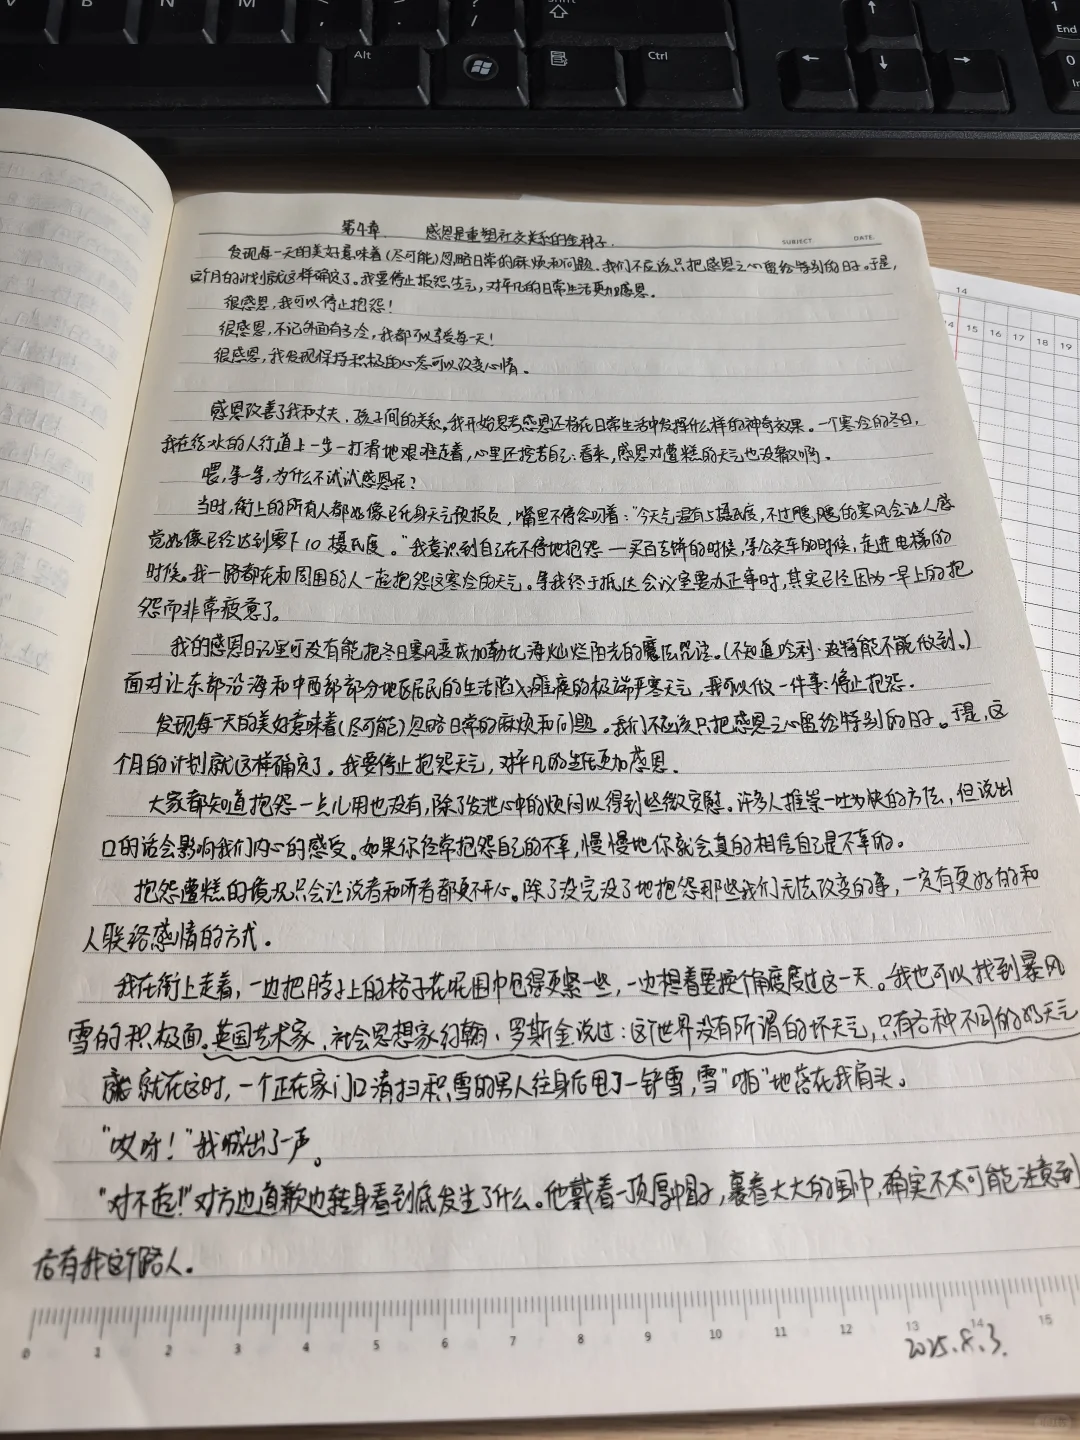 Alt
Ctrl
End
第4章 感恩是重塑社交关系的金种子.
SUBJECT DATE
发现每一天的美好意味着(尽可能)忽略日常的麻烦和问题.我们不应该只把感恩之心留给特别的日子.于是,
这个月的计划就这样确定了.我要停止报怨生气,对平凡的日常生活更加感恩.
很感恩,我可以停止抱怨!
很感恩,不论外面有多冷,我都可以享受每一天!
很感恩,我发现保持积极的心态可以改变心情.
感恩改善了我和丈夫.孩子间的关系,我开始思考感恩还将在日常生活中发挥什么样的神奇效果.一个寒冷的冬日,
我在结冰的人行道上一步一打滑地艰难走着,心里还挖苦自己:看来,感恩对遭糕的天气也没辙啊.
喂,等等,为什么不试试感恩呢?
当时,街上的所有人都好像已化身天气预报员,嘴里不停念叨着:"今天气温有5摄氏度,不过飕飕的寒风会让人感
觉好像已经达到零下10摄氏度."我意识到自己在不停地抱怨—买百吉饼的时候,等公交车的时候,走进电梯的
时候.我一路都在和周围的人一起抱怨这寒冷的天气.等我终于抵达会议室要办正事时,其实已经因为一早上的抱
怨而非常疲惫了。
我的感恩日记里可没有能把冬日寒风变成加勒比海灿烂阳光的魔法咒语.(不知道哈利·波特能不能做到.)
面对让东部沿海和中西部部分地区居民的生活陷入难度的极端严寒天气,我可以做一件事:停止抱怨.
发现每一天的美好意味着(尽可能)忽略日常的麻烦和问题。我们不应该只把感恩之心留给特别的日子。于是,这
个月的计划就这样确定了。我要停止抱怨天气,对平凡的生活更加感恩.
大家都知道抱怨一点儿用也没有,除了发泄心中的烦闷以得到些微安慰.许多人推崇一吐为快的方法,但说出
口的话会影响我们内心的感受。如果你经常抱怨自己的不幸,慢慢地你就会真的相信自己是不幸的。
抱怨遭糕的境况只会让说者和听者都更不开心。除了没完没了地抱怨那些我们无法改变的事,一定有更好的和
人联络感情的方式.
我在街上走着,一边把脖子上的格子花呢围巾包得更紧一些,一边想着要换个角度度过这一天.我也可以找到暴风
雪的积极面.英国艺术家,社会思想家约翰·罗斯金说过:这个世界没有所谓的坏天气,只有各种不同的好天气
就在这时,一个正在家门口清扫积雪的男人往身后甩了一铲雪,雪"啪"地落在我肩头。
"哎呀!"我喊出了一声。
"对不起!"对方也道歉也转身看到底发生了什么.他戴着一顶厚帽子,裹着大大的围巾,确实不太可能注意到
后有我这个路人.
0 1 2 3 4 5 6 7 8 9 10 11 12 13 14 15
2025.8.3.
14
14 15 16 17 18 19